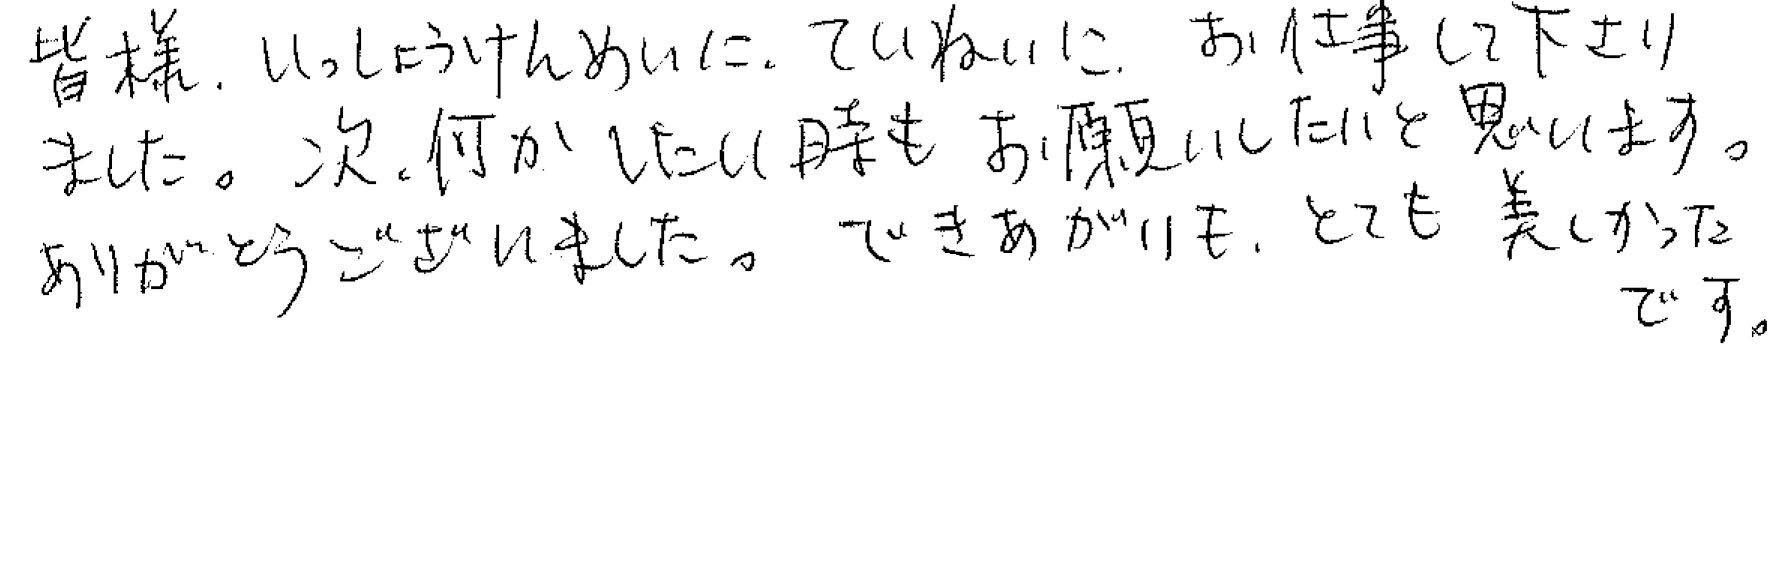 皆様、いっしょうけんめいに、ていねいに、お仕事して下さり
ました。次、何かしたい時もお願いしたいと思います。
ありがとうございました。できあがりも、とても美しかった
です。